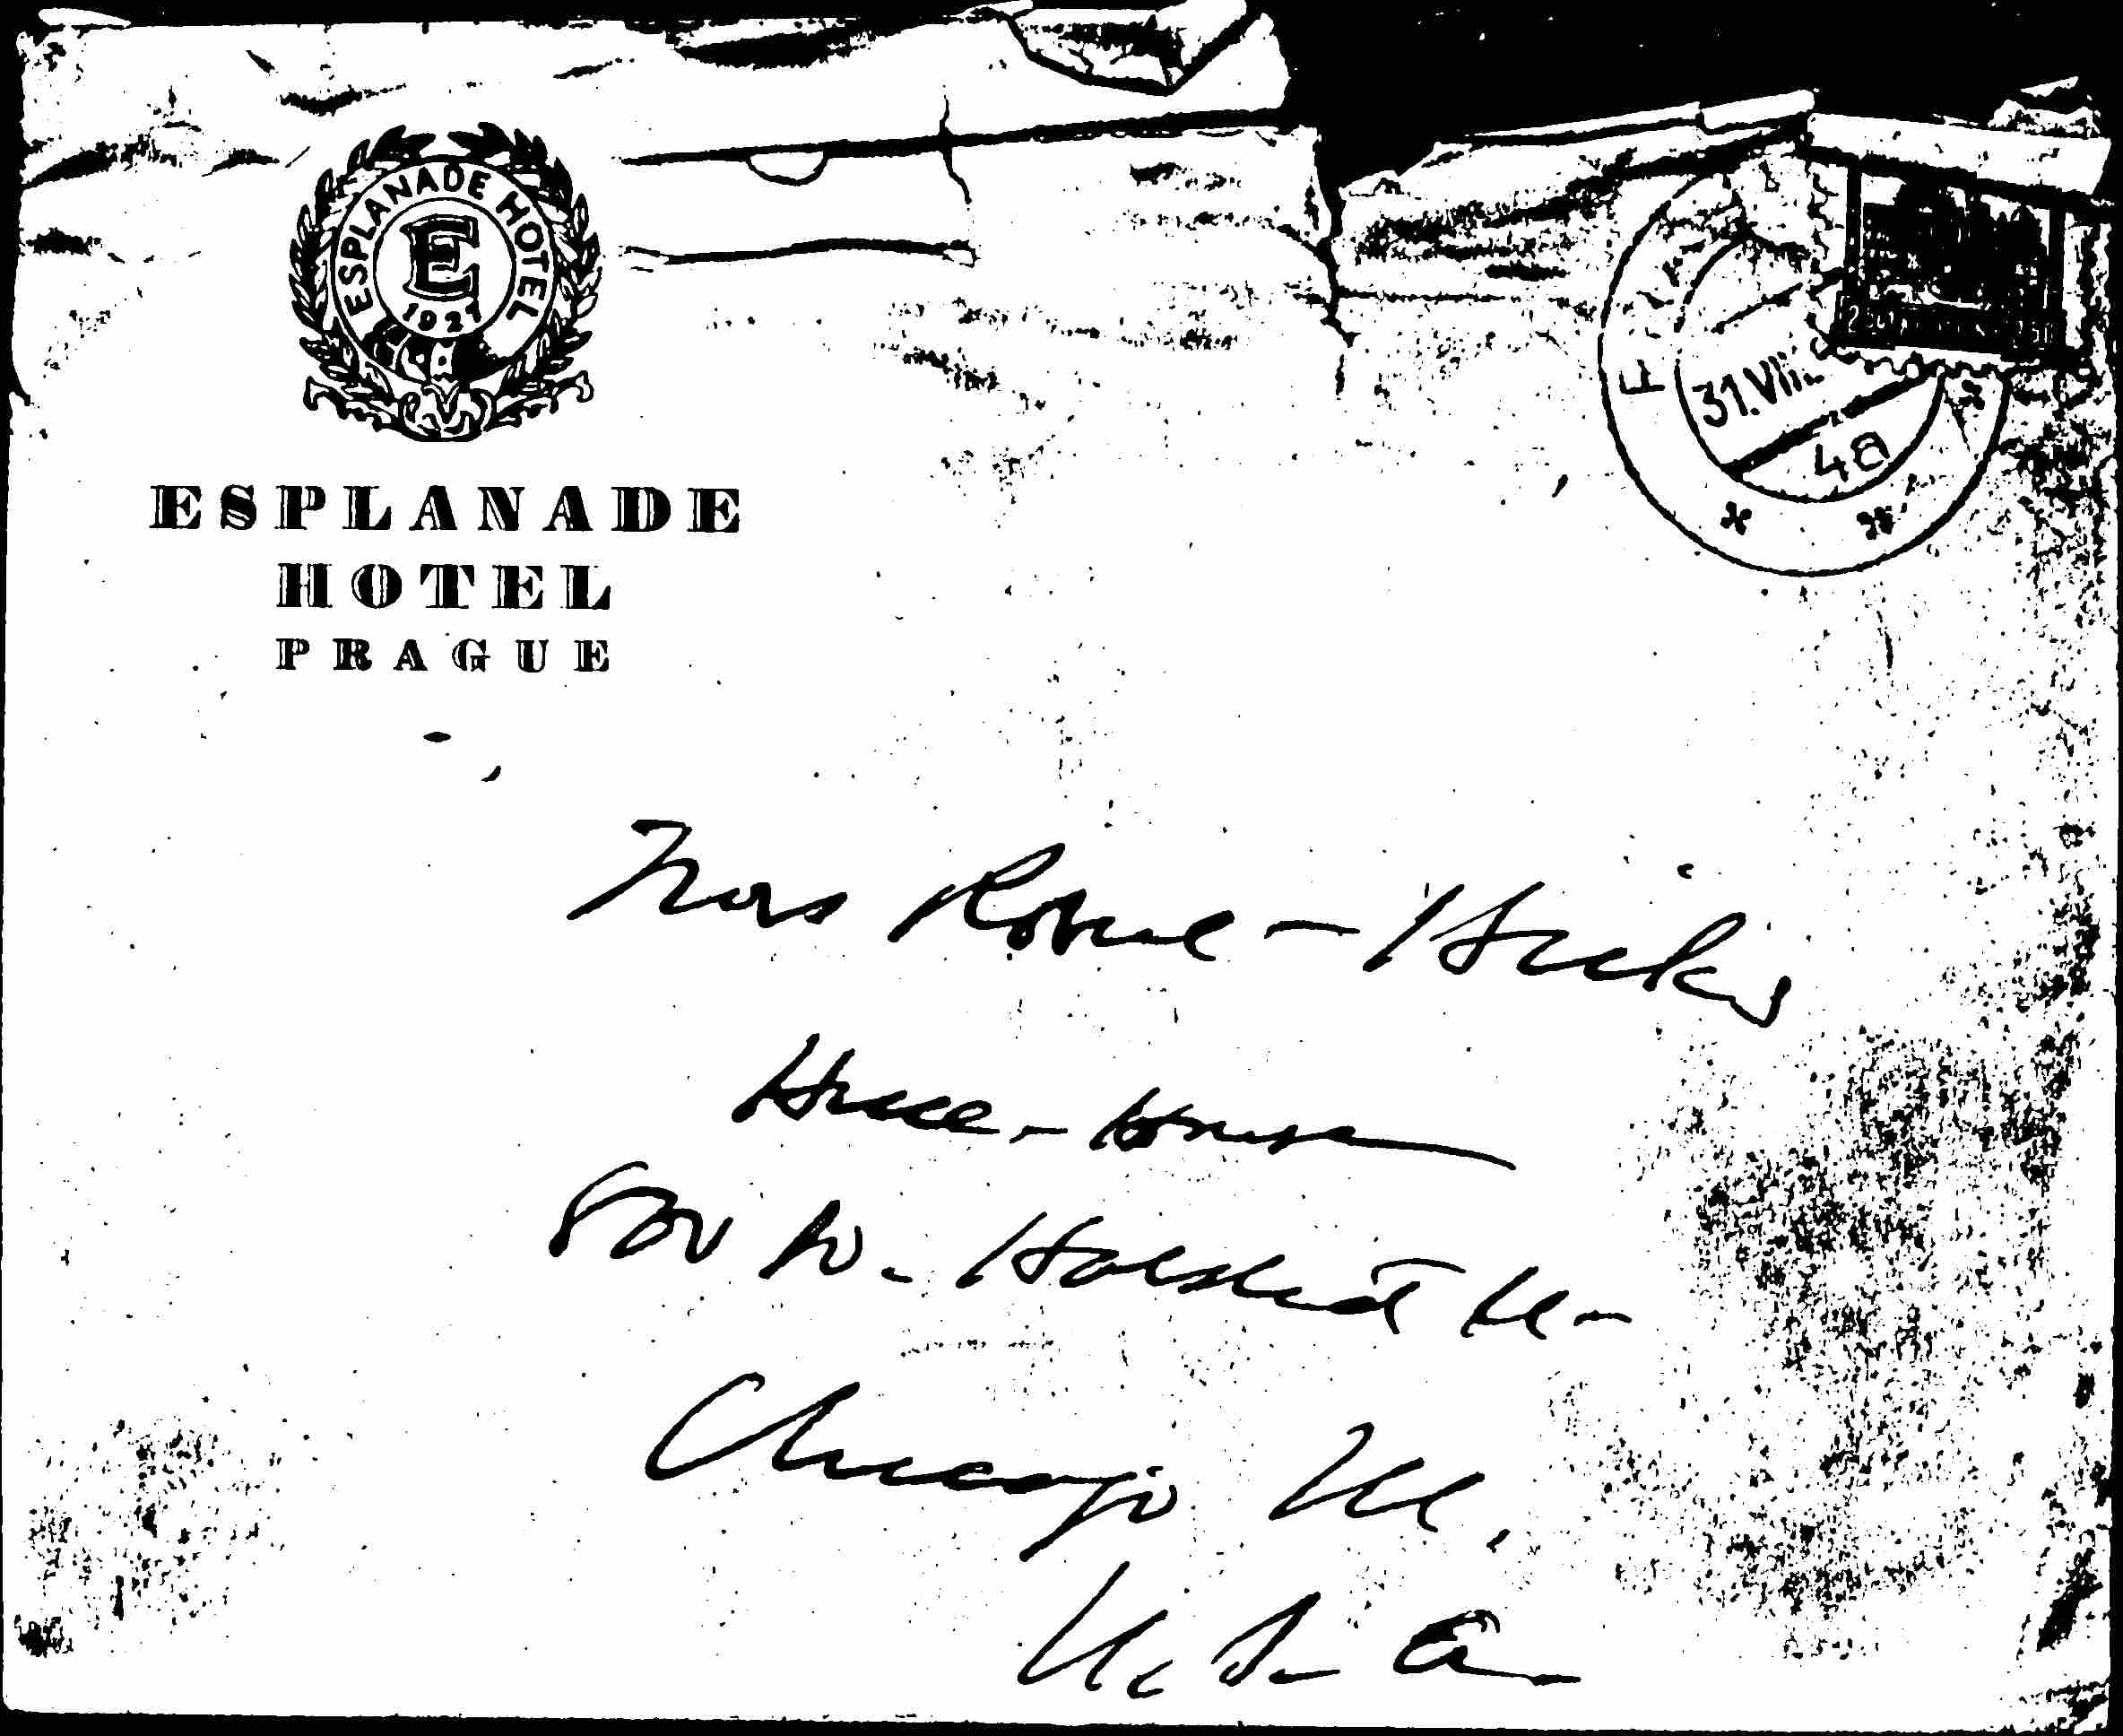 ESPLANADE HOTEL
E
1927
ESPLANADE
HOTEL
PRAGUE
31.VIII
4a
Mrs Robue - Hicks
Hull - House
800 So. Halsted St -
Chicago Ill.
U. S. A